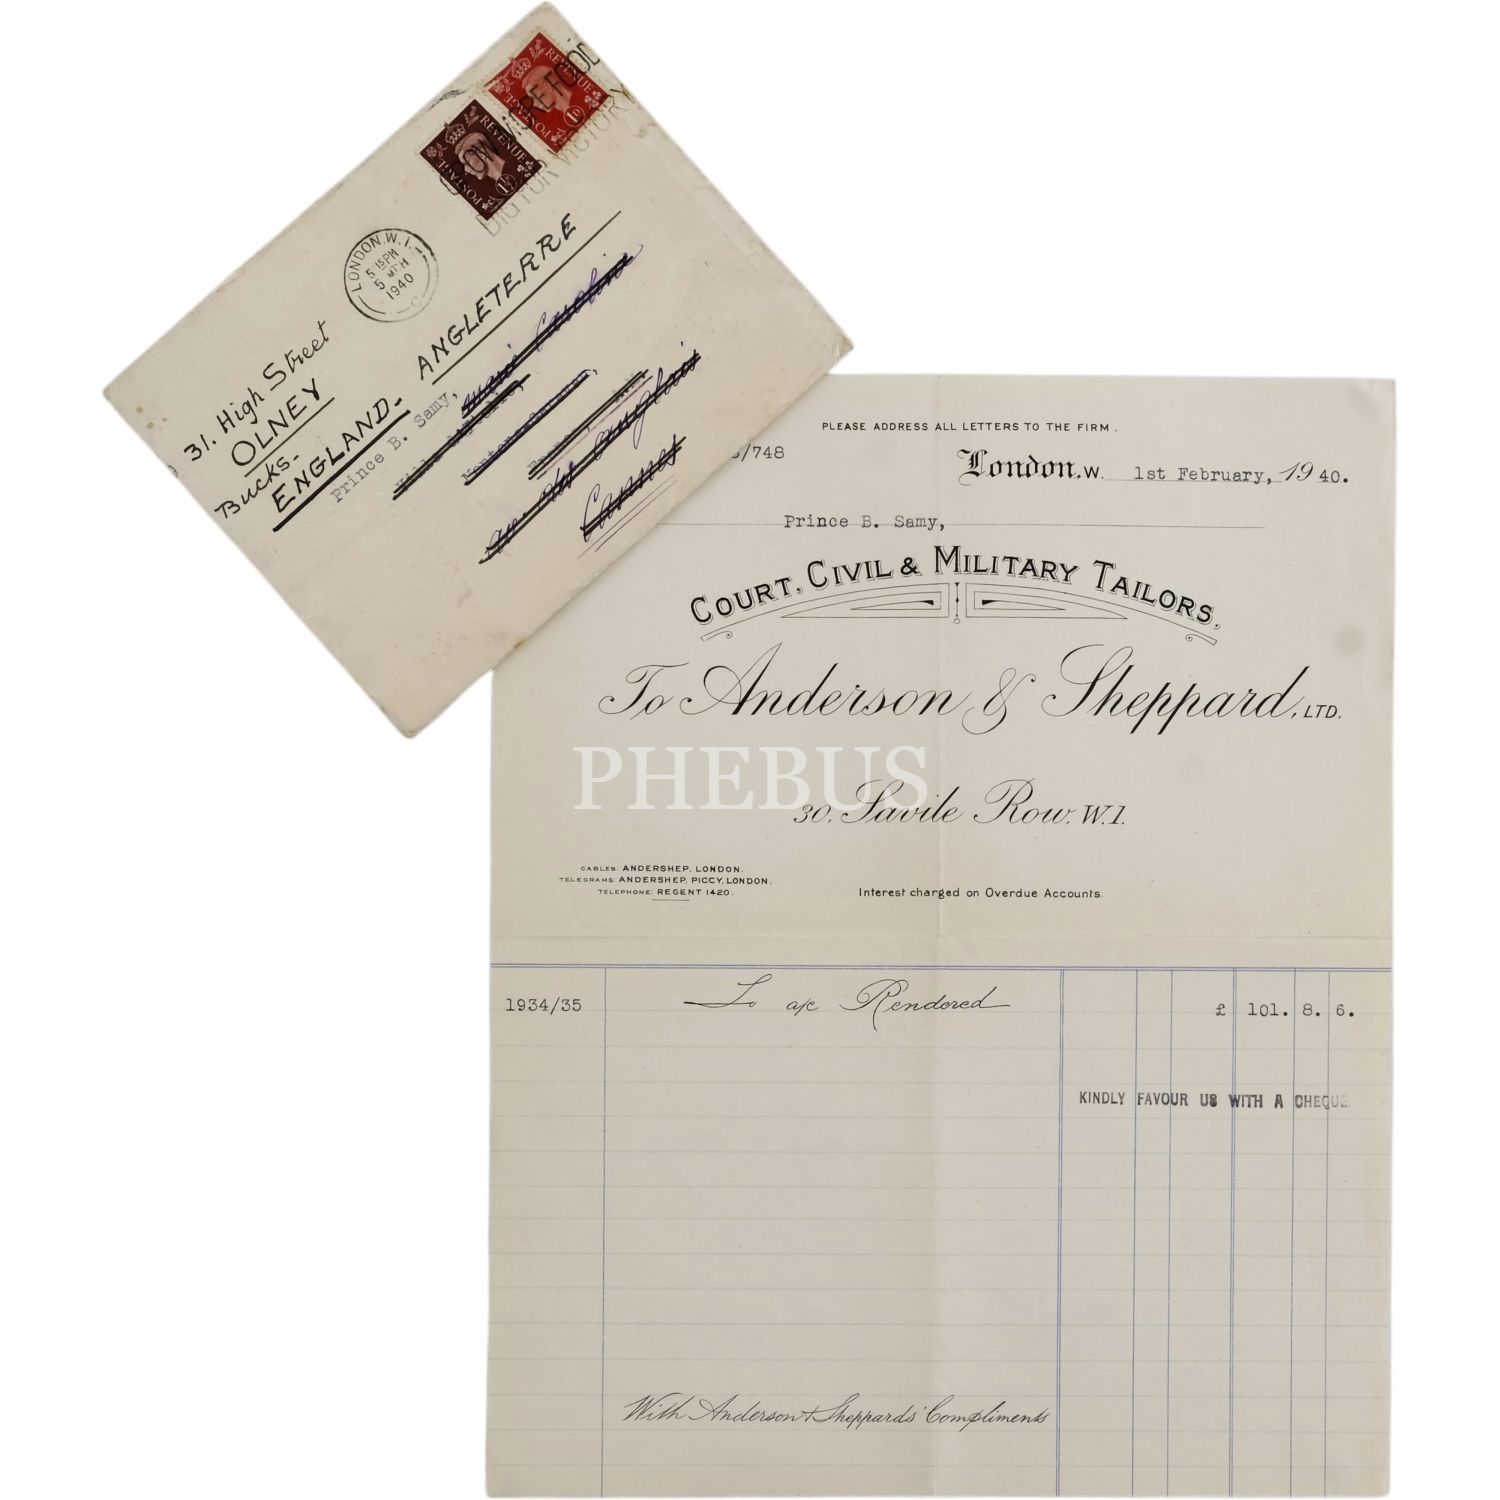 REVENUE
POSTAGE
1D
REVENUE
POSTAGE
1½D
GROW MORE FOOD
DIG FOR VICTORY
LONDON. W.1.
5 15 PM
5 MCH
1940
C
31. High Street
OLNEY
Bucks-
ENGLAND-
ANGLETERRE
Prince B. Samy,
Cannes
PLEASE ADDRESS ALL LETTERS TO THE FIRM.
/748
London, W. 1st February, 1940.
Prince B. Samy,
COURT, CIVIL & MILITARY TAILORS.
To Anderson & Sheppard, LTD.
PHEBUS
30, Savile Row, W.1.
CABLES: ANDERSHEP, LONDON.
TELEGRAMS: ANDERSHEP, PICCY, LONDON.
TELEPHONE: REGENT 1420.
Interest charged on Overdue Accounts.
1934/35 To a/c Rendered £ 101. 8. 6.
KINDLY FAVOUR US WITH A CHEQUE.
With Anderson & Sheppards' Compliments